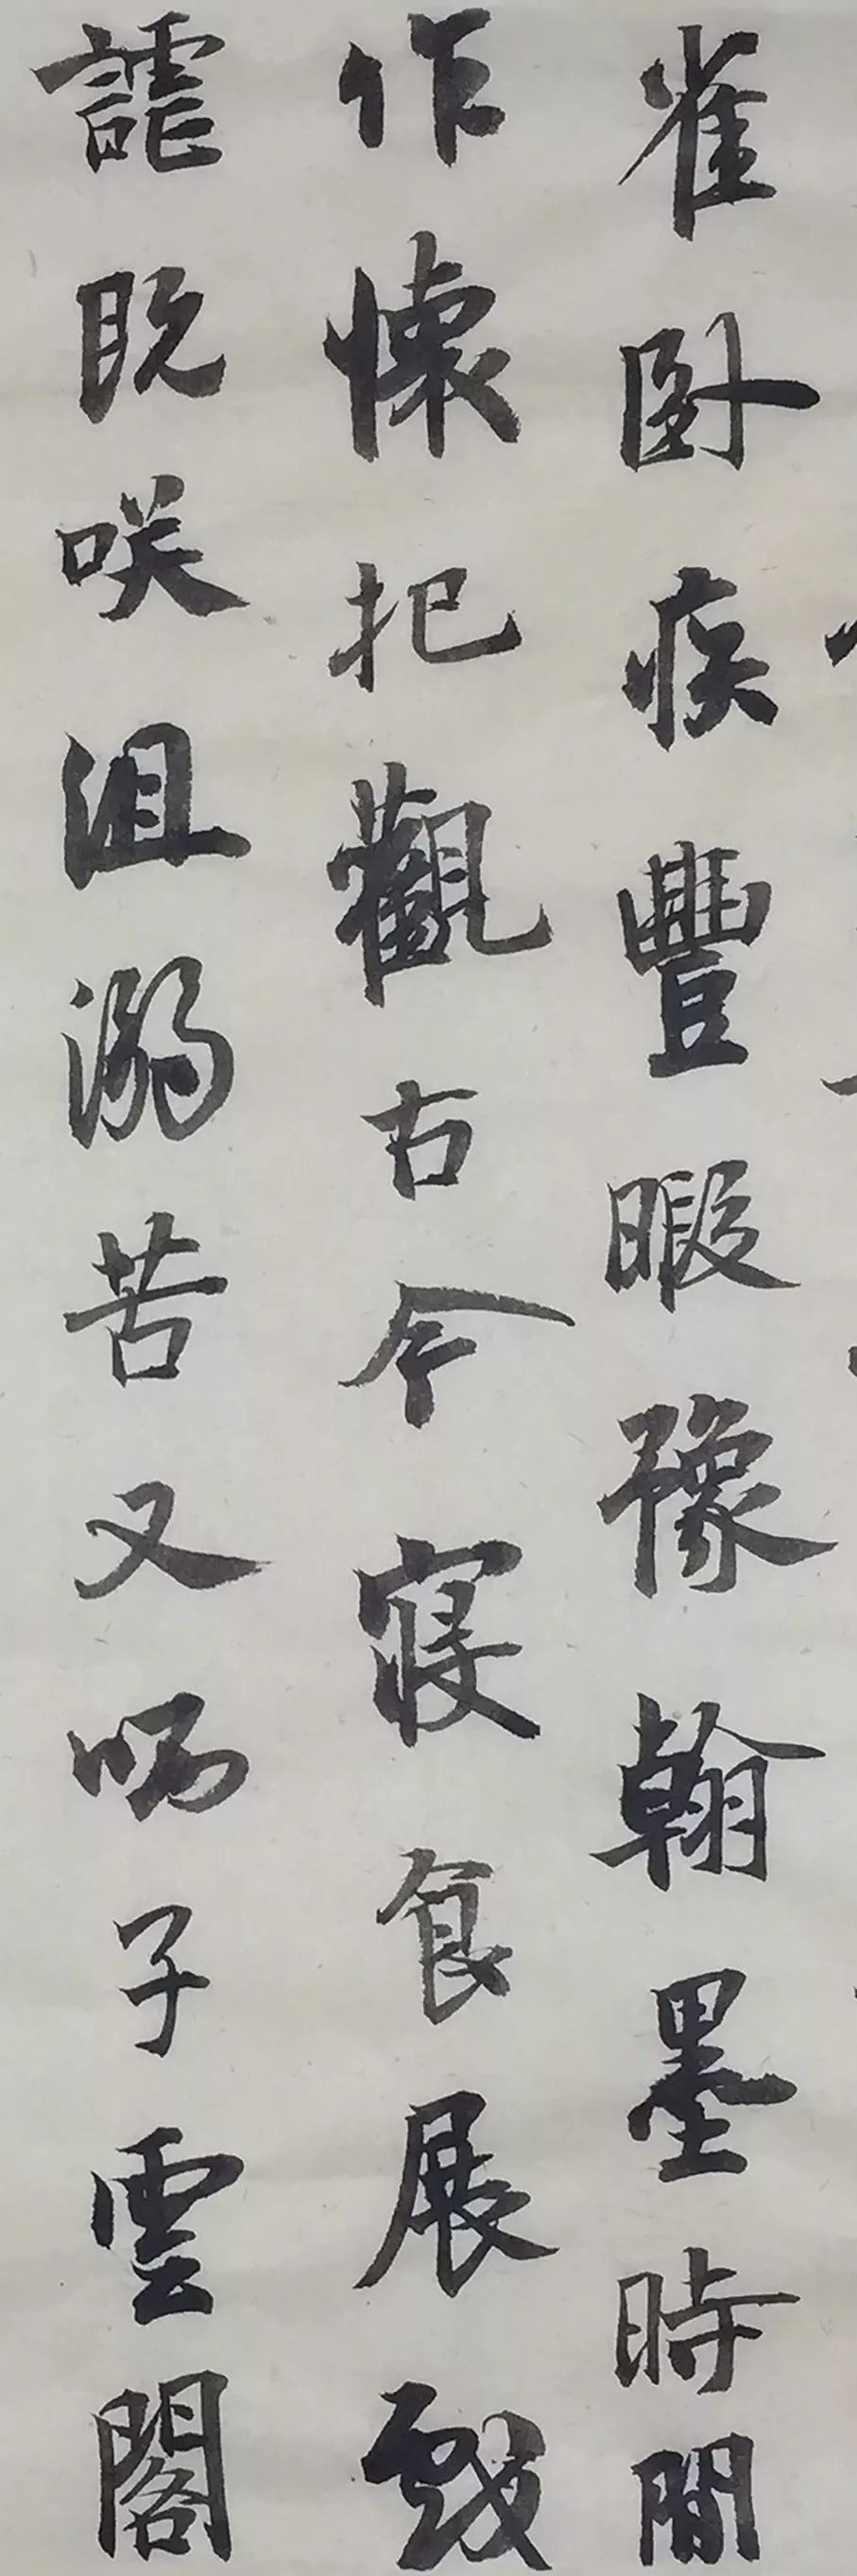 雀卧疾豐暇豫翰墨時間
作懷抱觀古今寢食展戲
謔既咲沮溺苦又哂子雲閣